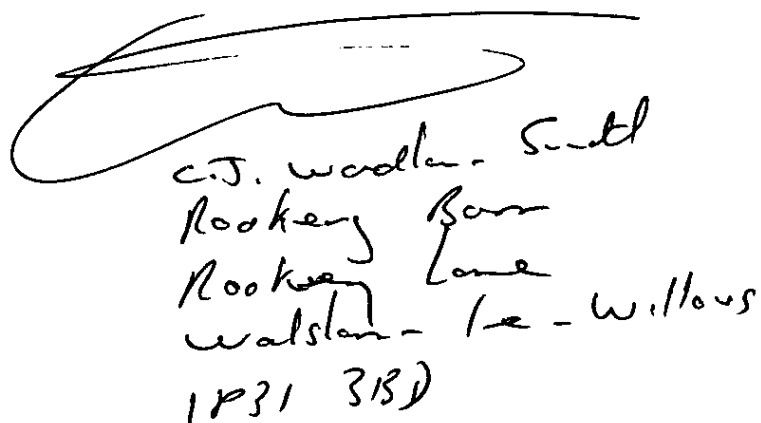 C.J. Wadlan - Smith
Rookery Barn
Rookery Lane
Walsham - le - Willows
IP31 3BD